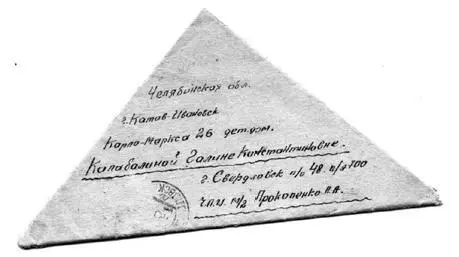 Челябинская обл.
г. Катав-Ивановск
Карла-Маркса 26 дет.дом.
Калабалиной Галине Константиновне.
г. Свердловск п/о 48. п/я 100
Прокопенко